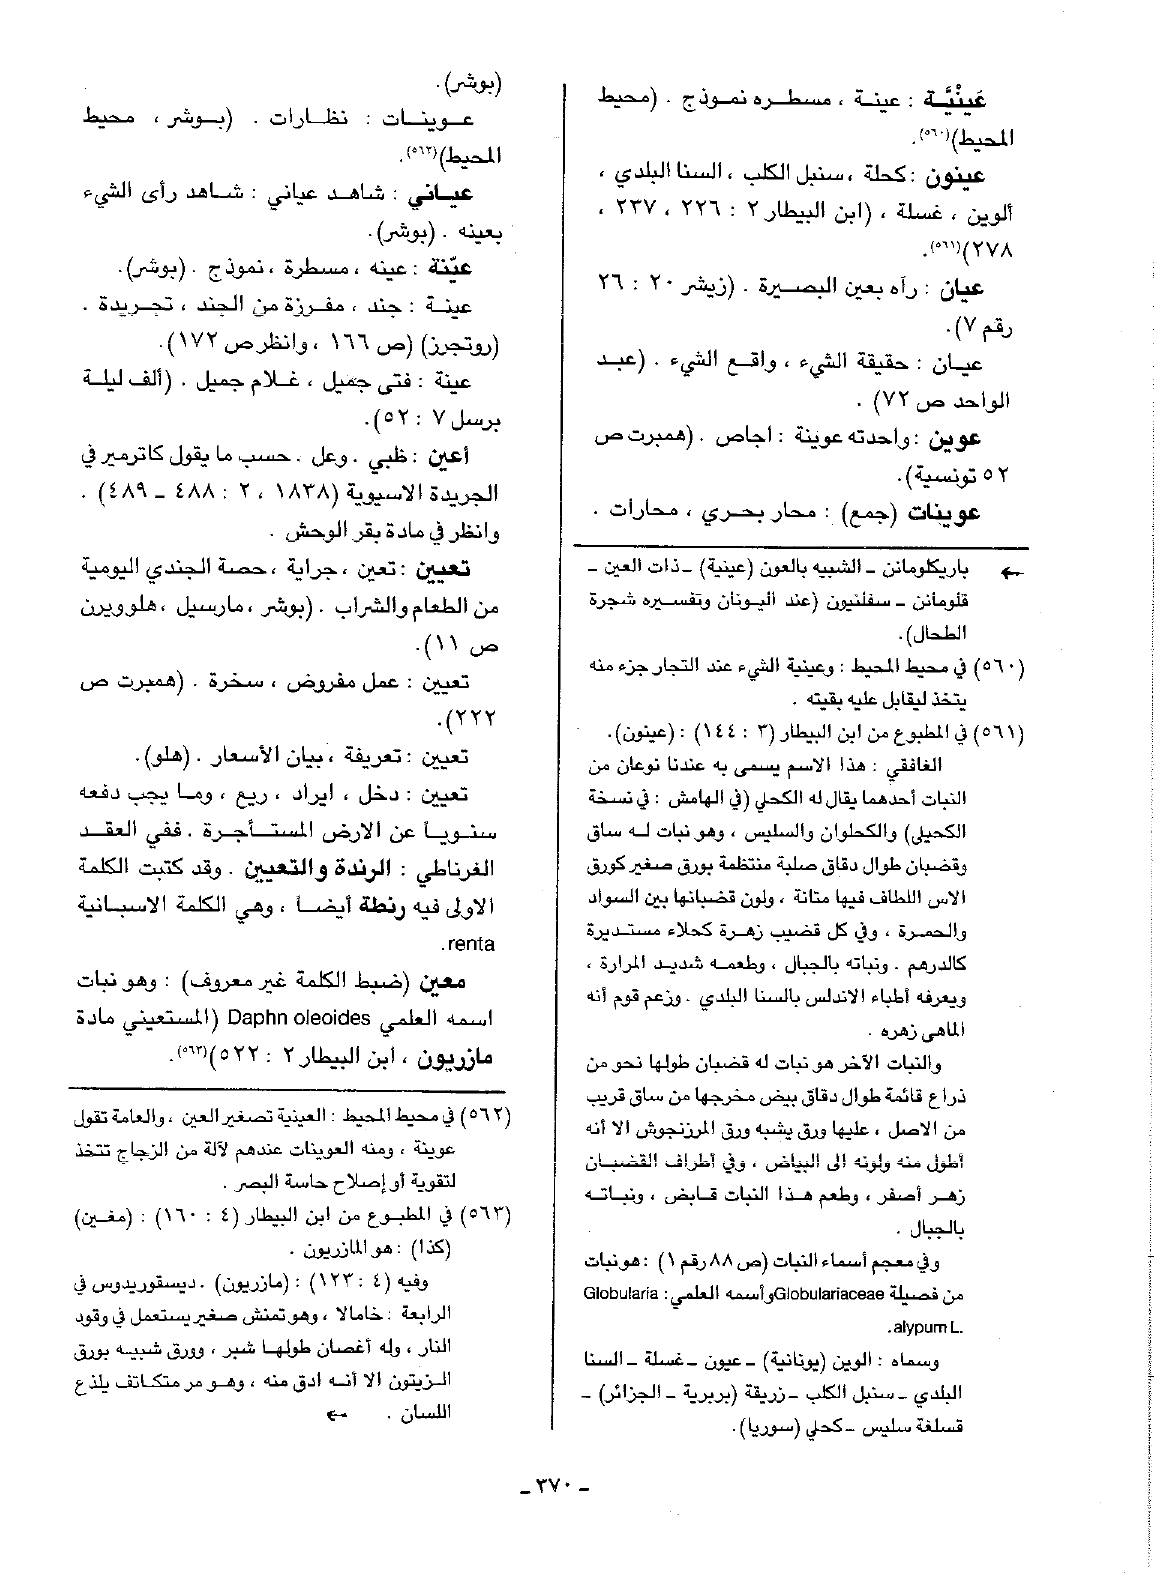 عَيْنِيَّة : عينة ، مسطره نموذج . (محيط
المحيط)(٥٦٠).
عينون : كحلة ، سنبل الكلب ، السنا البلدي ،
ألوين ، غسلة ، (ابن البيطار ٢ : ٢٢٦ ، ٢٣٧ ،
٢٧٨)(٥٦١).
عيان : رآه بعين البصيرة . (زيشر ٢٠ : ٢٦
رقم ٧).
عيان : حقيقة الشيء ، واقع الشيء . (عبد
الواحد ص ٧٢) .
عوين : واحدته عوينة : اجاص . (همبرت ص
٥٢ تونسية).
عوينات (جمع) : محار بحري ، محارات .
← باريكلومانن ـ الشبيه بالعون (عينية) ـ ذات العين ـ
قلومانن ـ سفلنيون (عند اليونان وتفسيره شجرة
الطحال).
(٥٦٠) في محيط المحيط : وعينية الشيء عند التجار جزء منه
يتخذ ليقابل عليه بقيته .
(٥٦١) في المطبوع من ابن البيطار (٣ : ١٤٤) : (عينون).
الغافقي : هذا الاسم يسمى به عندنا نوعان من
النبات أحدهما يقال له الكحلي (في الهامش : في نسخة
الكحيلي) والكحلوان والسليس ، وهو نبات له ساق
وقضبان طوال دقاق صلبة منتظمة بورق صغير كورق
الاس اللطاف فيها متانة ، ولون قضبانها بين السواد
والحمرة ، وفي كل قضيب زهرة كحلاء مستديرة
كالدرهم . ونباته بالجبال ، وطعمه شديد المرارة ،
ويعرفه أطباء الاندلس بالسنا البلدي . وزعم قوم أنه
الماهي زهره .
والنبات الآخر هو نبات له قضبان طولها نحو من
ذراع قائمة طوال دقاق بيض مخرجها من ساق قريب
من الاصل ، عليها ورق يشبه ورق المرزنجوش الا أنه
أطول منه ولونه الى البياض ، وفي أطراف القضبان
زهر أصفر ، وطعم هذا النبات قابض ، ونباته
بالجبال .
وفي معجم أسماء النبات (ص ٨٨ رقم ١) : هو نبات
من فصيلة Globulariaceae وأسمه العلمي : Globularia
alypum L.
وسماه : الوين (يونانية) ـ عيون ـ غسلة ـ السنا
البلدي ـ سنبل الكلب ـ زريقة (بربرية ـ الجزائر) ـ
قسلغة سليس ـ كحلي (سوريا).
(بوشر).
عوينات : نظارات . (بوشر ، محيط
المحيط)(٥٦٢).
عياني : شاهد عياني : شاهد رأى الشيء
بعينه . (بوشر).
عيّنة : عينه ، مسطرة ، نموذج . (بوشر).
عينة : جند ، مفرزة من الجند ، تجريدة .
(روتجرز) (ص ١٦٦ ، وانظر ص ١٧٢).
عينة : فتى جميل ، غلام جميل . (ألف ليلة
برسل ٧ : ٥٢).
أعين : ظبي . وعل . حسب ما يقول كاترمير في
الجريدة الاسيوية (١٨٣٨ ، ٢ : ٤٨٨ ـ ٤٨٩) .
وانظر في مادة بقر الوحش .
تعيين : تعين ، جراية ، حصة الجندي اليومية
من الطعام والشراب . (بوشر ، مارسيل ، هلوويرن
ص ١١).
تعيين : عمل مفروض ، سخرة . (همبرت ص
٢٢٢).
تعيين : تعريفة ، بيان الأسعار . (هلو).
تعيين : دخل ، ايراد ، ريع ، وما يجب دفعه
سنوياً عن الارض المستأجرة . ففي العقد
الغرناطي : الرندة والتعيين . وقد كتبت الكلمة
الاولى فيه رنطة أيضاً ، وهي الكلمة الاسبانية
renta.
معين (ضبط الكلمة غير معروف) : وهو نبات
اسمه العلمي Daphn oleoides (المستعيني مادة
مازريون ، ابن البيطار ٢ : ٥٢٢)(٥٦٣).
(٥٦٢) في محيط المحيط : العينية تصغير العين ، والعامة تقول
عوينة ، ومنه العوينات عندهم لآلة من الزجاج تتخذ
لتقوية أو إصلاح حاسة البصر .
(٥٦٣) في المطبوع من ابن البيطار (٤ : ١٦٠) : (مغين)
(كذا) : هو المازريون .
وفيه (٤ : ١٢٣) : (مازريون) . ديسقوريدوس في
الرابعة : خامالا ، وهو تمنش صغير يستعمل في وقود
النار ، وله أغصان طولها شبر ، وورق شبيه بورق
الزيتون الا أنه ادق منه ، وهو مر متكاثف يلذع
اللسان . ←
ـ ٣٧٠ ـ